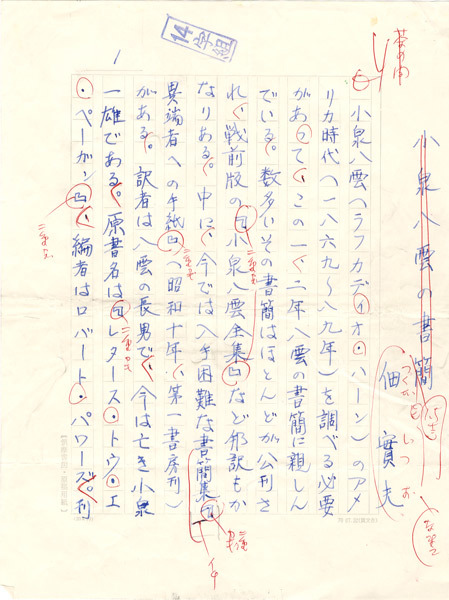 14学組
1
茶の間
小泉八雲の書簡
佃實夫
つくだ じつお
小泉八雲(ラフカディオ・ハーン)のアメ
リカ時代(一八六九〜八九年)を調べる必要
があって、この一、二年八雲の書簡に親しん
でいる。数多いその書簡はほとんどが公刊さ
れ、戦前版の『小泉八雲全集』など邦訳もか
なりある。中に、今では入手困難な書簡集『
異端者への手紙』(昭和十年、第一書房刊)
がある。訳者は八雲の長男で、今は亡き小泉
一雄である。原書名は『レタース・トウ・エ
・ペーガン』、編者はロバート・パワーズ。刊